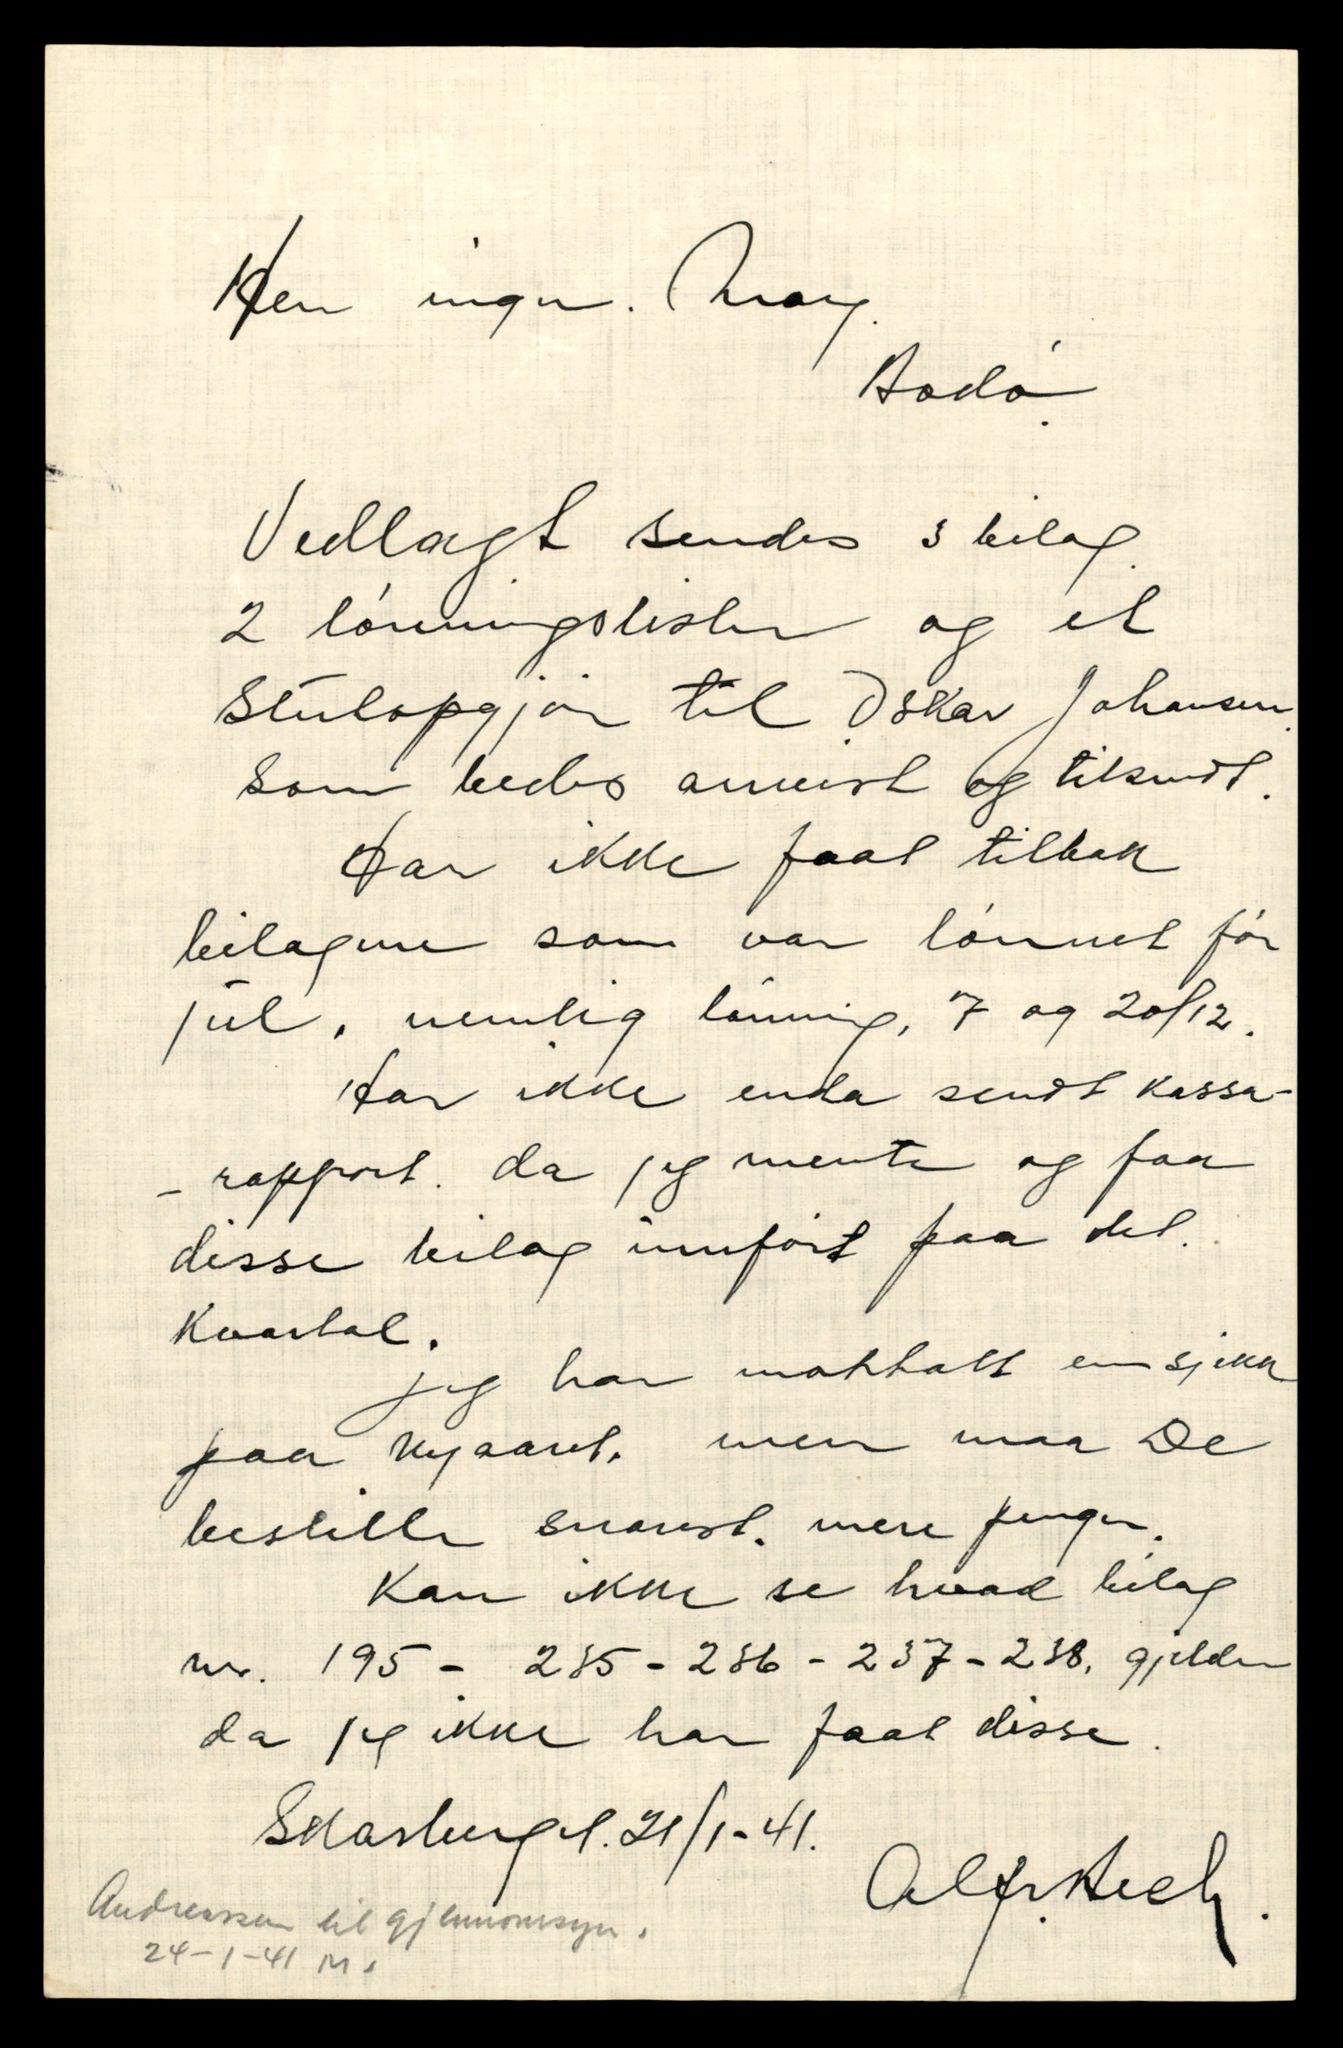 Herr ingen.
Bodø.
Vedlagt sendes 3 bilag
2 lønningslister og et
Stulopgjør til Oskar Johansen
som bedes anvist og tilsendt.
Har ikke faat tilbak
bilagene som var lønnet før
jul, nemlig lønning, 7 og 20/12.
Har ikke enda sendt kassa-
- rapport. da jeg mente og faa
disse bilag innført paa det.
Kvartal.
jeg har mottatt en sjekk
paa nyaaret. men maa De
bestille snarest. mere penger.
Kan ikke se hvad bilag
nr. 195 - 235 - 236 - 237 - 238, gjelder
da jeg ikke har faat disse.
21/1-41.
Alf
Andreassen til gjennomsyn.
24-1-41 M.